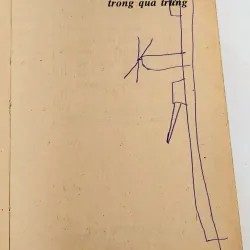 trong quả trứng